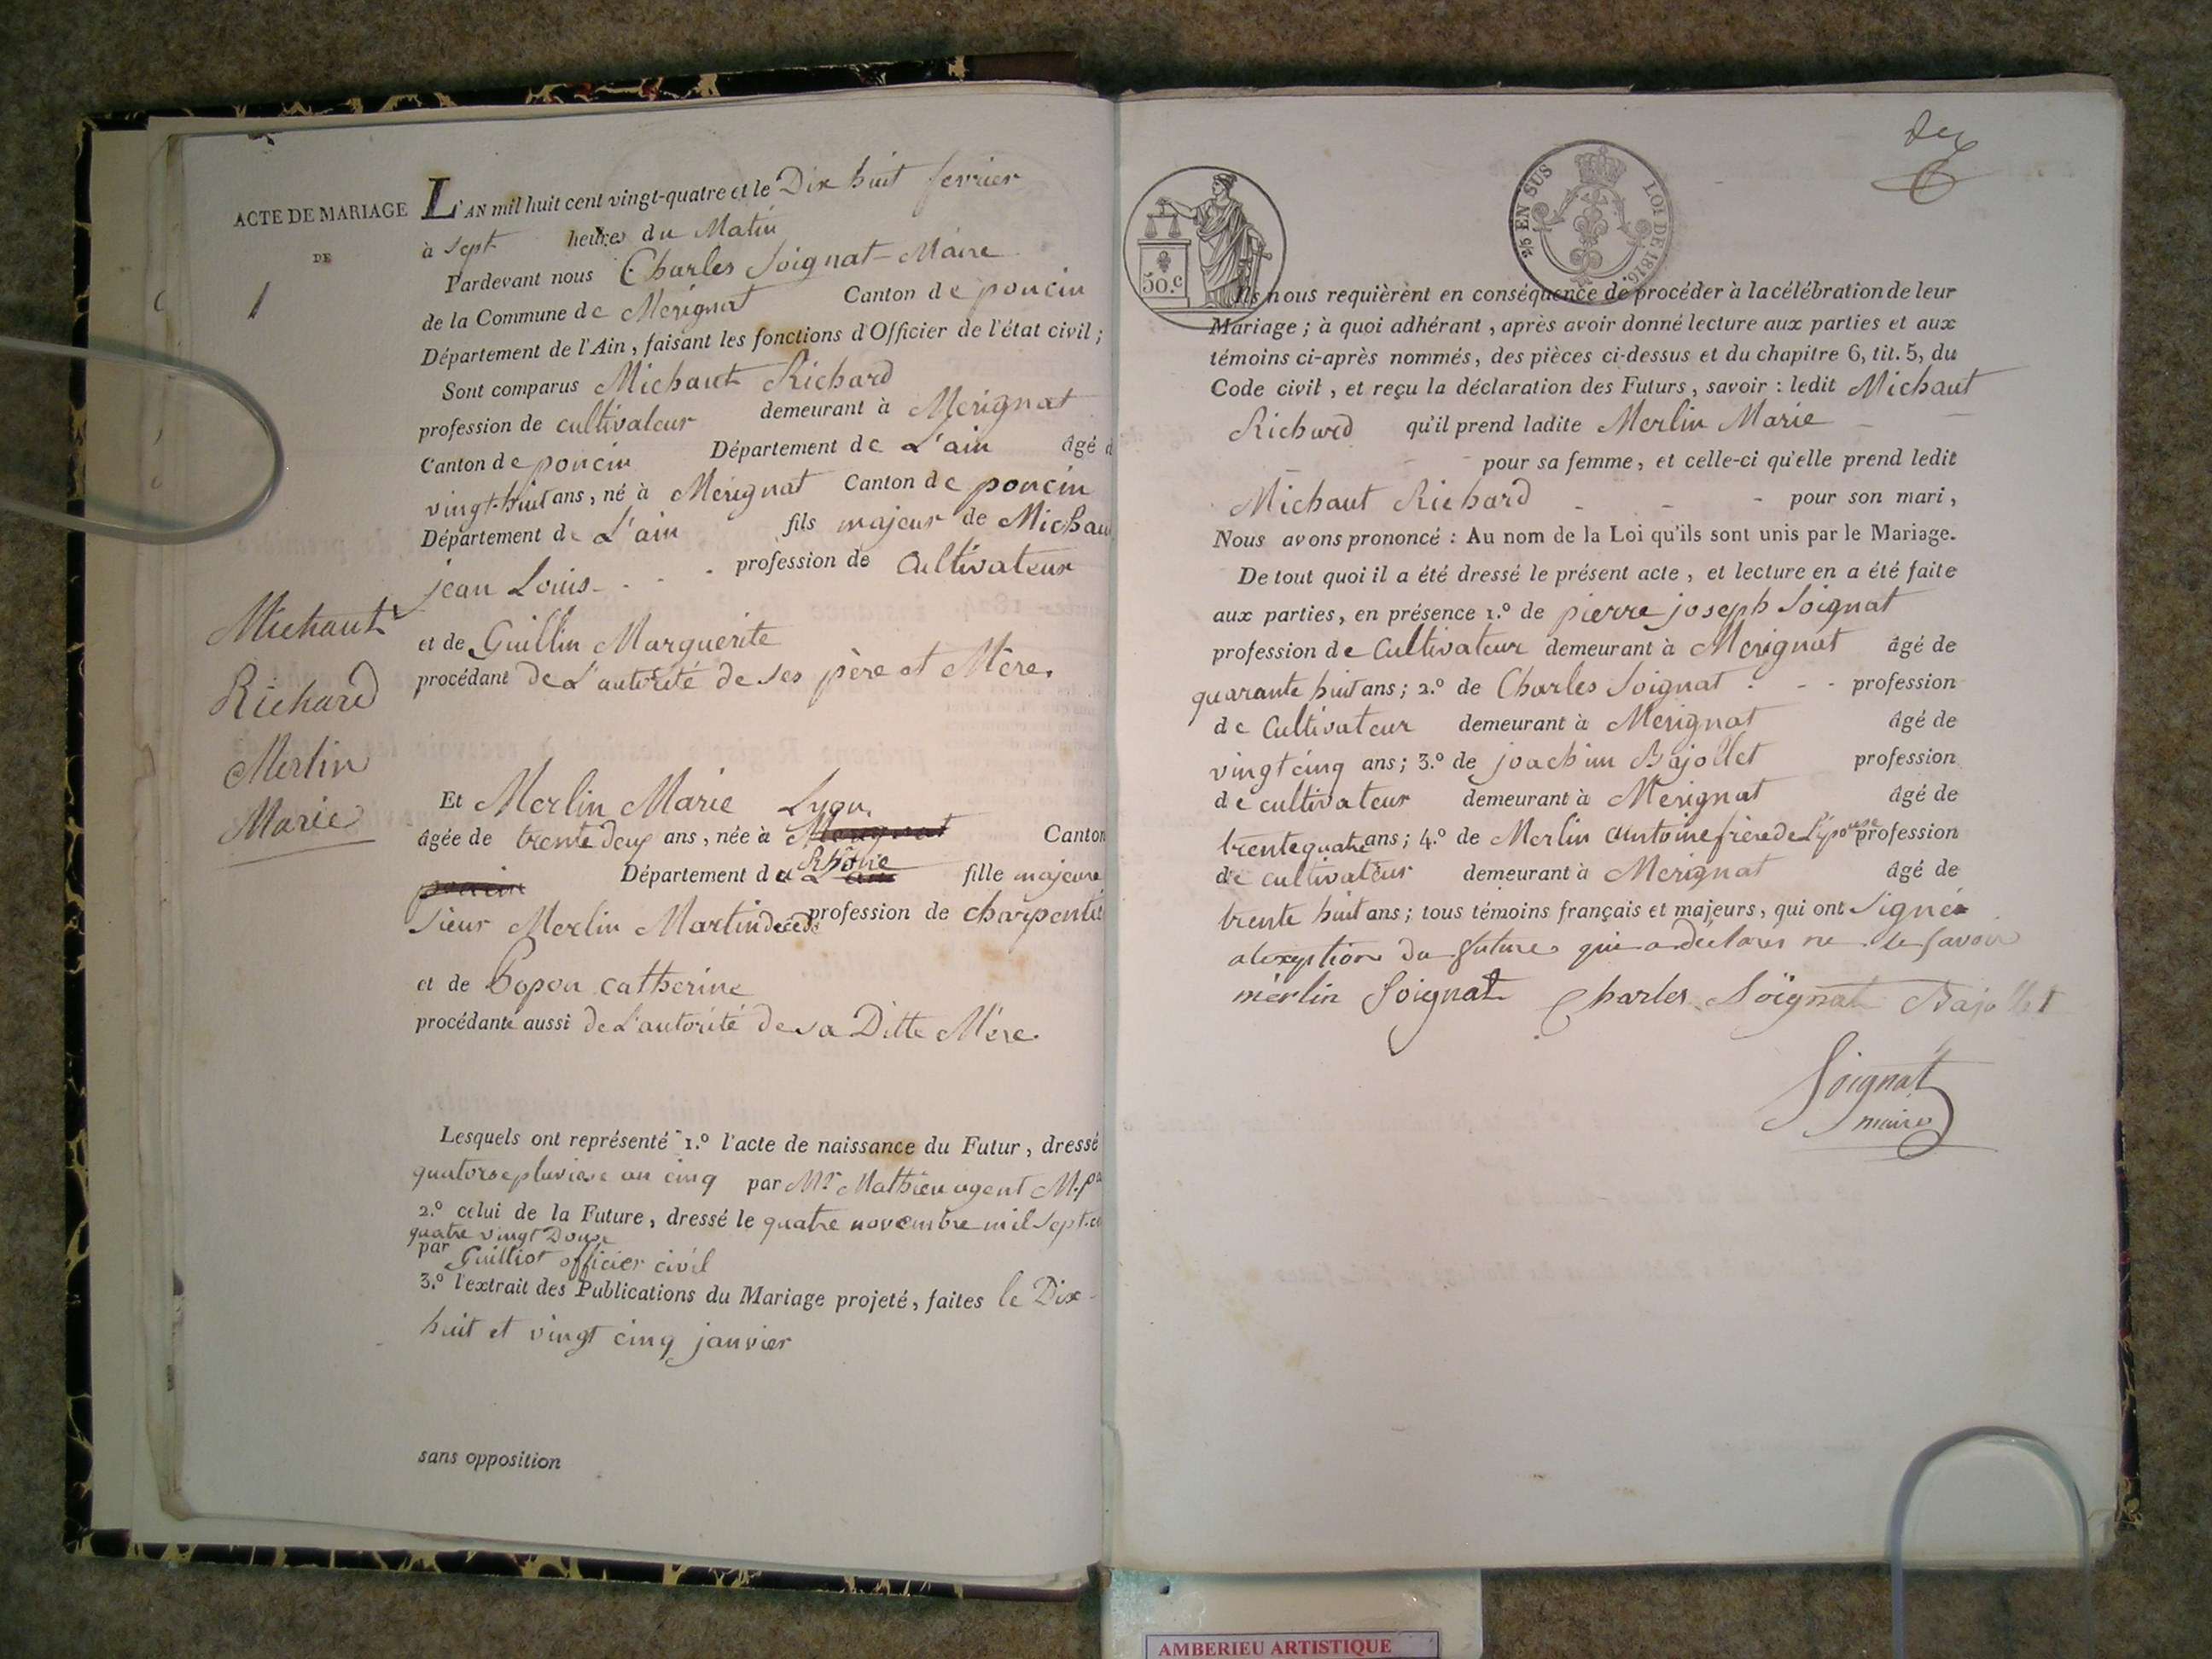 ACTE DE MARIAGE
DE
1
Michaut
Richard
Merlin
Marie
L'AN mil huit cent vingt-quatre et le Dix huit fevrier
à sept heures du Matin
Pardevant nous Charles Soignat Maire
de la Commune de Merignat Canton de poncin
Département de l'Ain, faisant les fonctions d'Officier de l'état civil;
Sont comparus Michaut Richard
profession de cultivateur demeurant à Merignat
Canton de poncin Département de L'ain âgé d
vingt-huit ans, né à Merignat Canton de poncin
Département de L'ain fils majeur de Michau
jean Louis
profession de Cultivateur
et de Guillin Marguerite
procédant de L'autorité de ses père et Mère.
Et Merlin Marie Lyon
âgée de trente deux ans, née à Merignat Canton
poncin Département de L'ain Rhône fille majeure
sieur Merlin Martin décédé profession de charpentie
et de Popon catherine
procédante aussi de L'autorité de sa Ditte Mère.
Lesquels ont représenté 1.º l'acte de naissance du Futur, dressé
quatorse pluviose an cinq par Mr Mathieu agent M.pal
2.º celui de la Future, dressé le quatre novembre mil sept ce
quatre vingt Douse
par Guilliot officier civil
3.º l'extrait des Publications du Mariage projeté, faites le Dix-
huit et vingt cinq janvier
sans opposition
50.C
2/6 EN SUS
LOI DE 1816.
Ils nous requièrent en conséquence de procéder à la célébration de leur
Mariage; à quoi adhérant, après avoir donné lecture aux parties et aux
témoins ci-après nommés, des pièces ci-dessus et du chapitre 6, tit. 5, du
Code civil, et reçu la déclaration des Futurs, savoir : ledit Michaut
Richard qu'il prend ladite Merlin Marie
pour sa femme, et celle-ci qu'elle prend ledit
Michaut Richard pour son mari,
Nous avons prononcé : Au nom de la Loi qu'ils sont unis par le Mariage.
De tout quoi il a été dressé le présent acte, et lecture en a été faite
aux parties, en présence 1.º de pierre joseph Soignat
profession de Cultivateur demeurant à Merignat âgé de
quarante huit ans; 2.º de Charles Soignat profession
de Cultivateur demeurant à Merignat âgé de
vingt cinq ans; 3.º de joachim Bajollet profession
de cultivateur demeurant à Merignat âgé de
trente quatre ans; 4.º de Merlin antoine frère de L'épouse profession
de cultivateur demeurant à Merignat âgé de
trente huit ans; tous témoins français et majeurs, qui ont signé
a lexeption du future qui a déclaré ne le savoir
merlin Soignat Charles Soignat Bajollet
Soignat
maire
AMBERIEU ARTISTIQUE